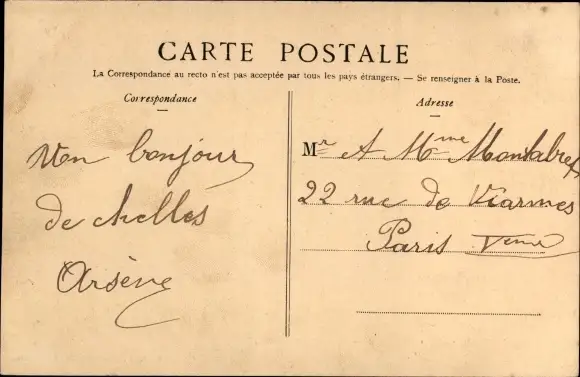 CARTE POSTALE
La Correspondance au recto n'est pas acceptée par tous les pays étrangers. — Se renseigner à la Poste.
Correspondance
Adresse
Un bonjour
de chelles
Arsène
Mr A Mme
22 rue de Viarmes
Paris